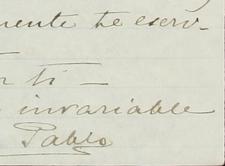 mente te escri-
r ti -
invariable
Pablo